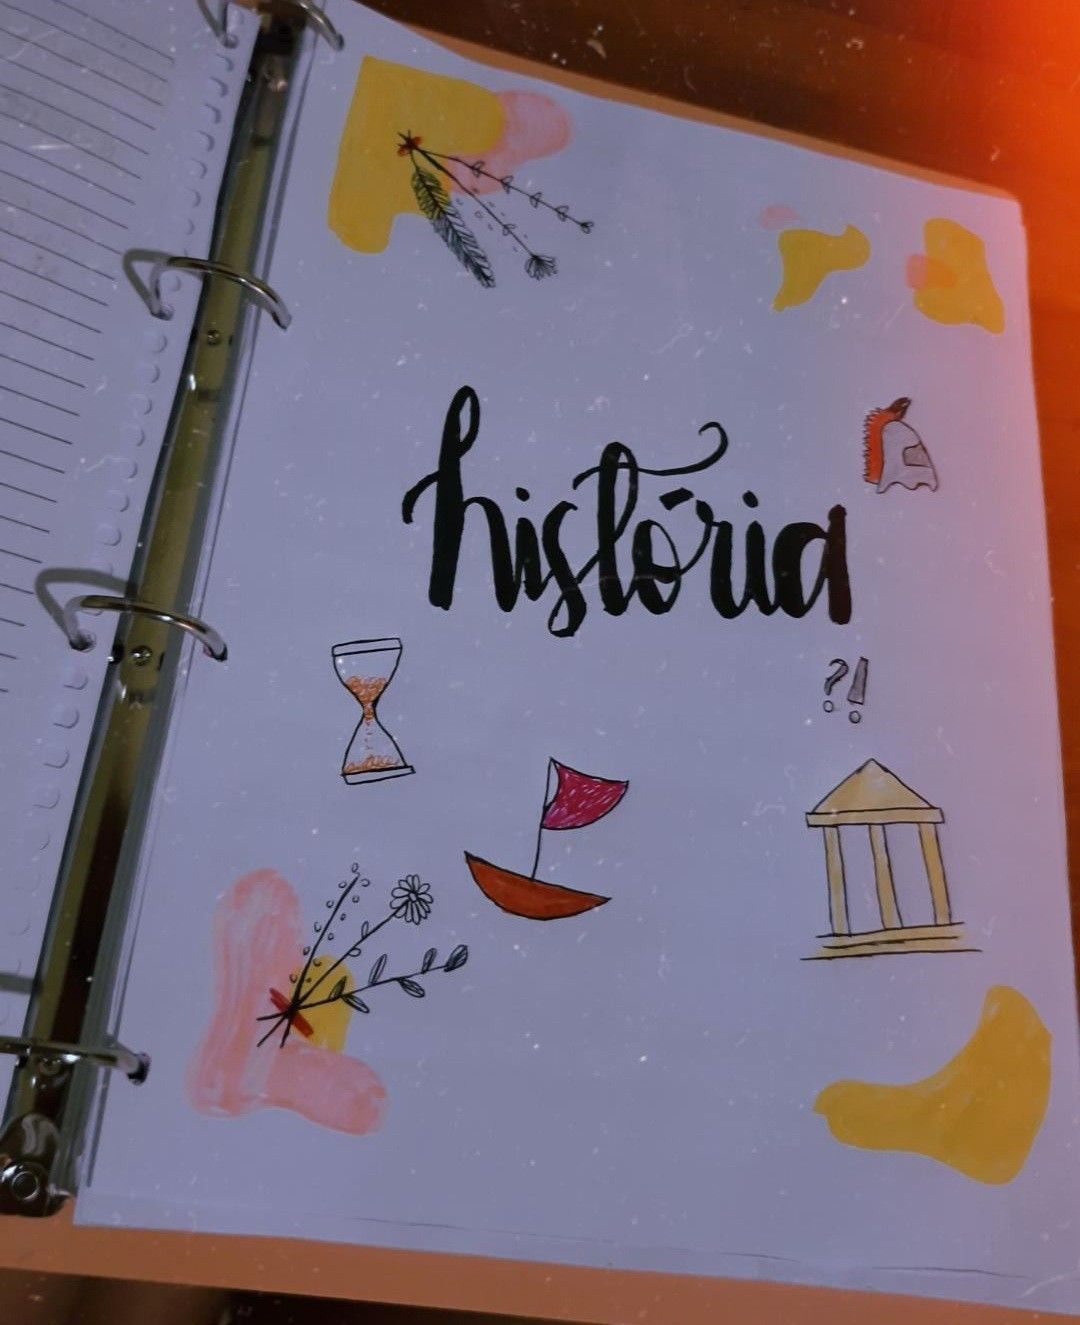 história
?!